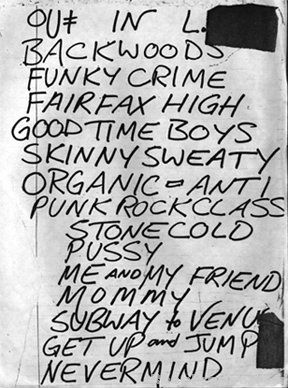 OUT IN L.
BACKWOODS
FUNKY CRIME
FAIRFAX HIGH
GOOD TIME BOYS
SKINNY SWEATY
ORGANIC = ANTI
PUNK ROCK CLASS
STONE COLD
PUSSY
ME AND MY FRIEND
MOMMY
SUBWAY to VENU
GET UP and JUMP
NEVERMIND